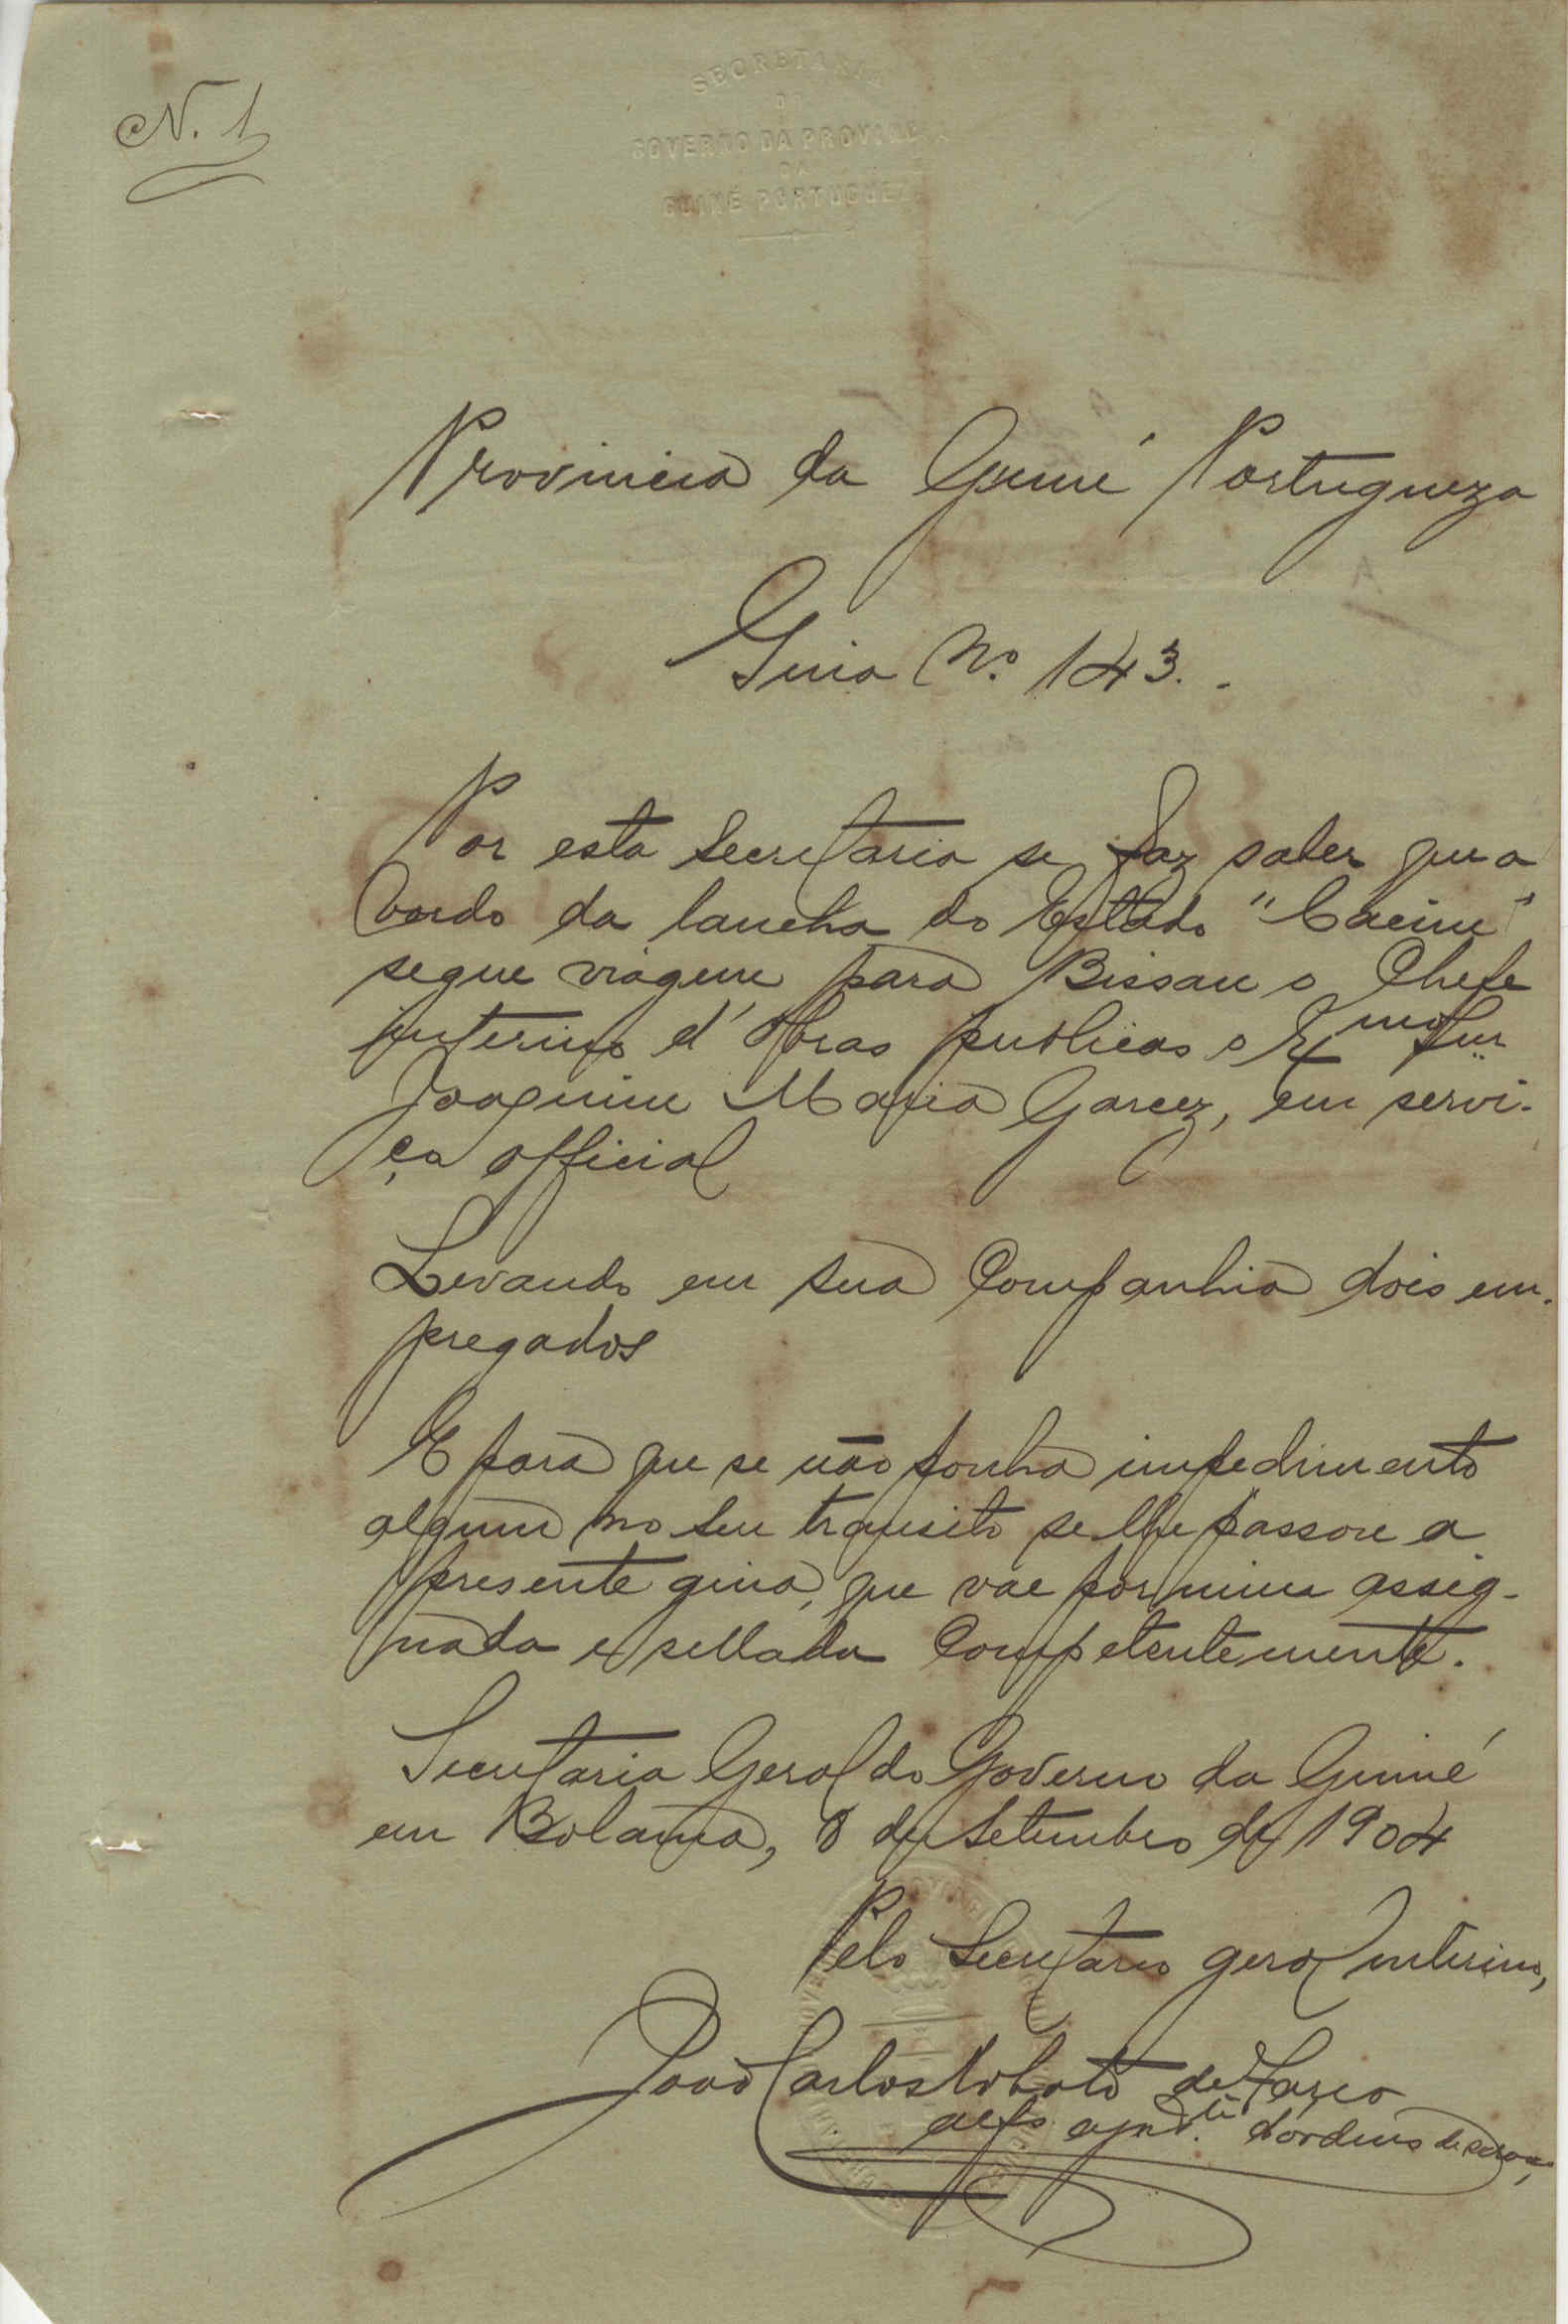 N. 1
SECRETARIA
DO
GOVERNO DA PROVINCIA
DA
GUINÉ PORTUGUEZA
Provincia da Guiné Portugueza
Guia No. 143.
Por esta Secretaria se faz saber que a
bordo da lancha do Estado "Cacine"
segue viagem para Bissau o Chefe
interino d'Obras publicas o Exmo Snr
Joaquim Maria Garcez, em servi-
ço official
Levando em sua Companhia dois em-
pregados
E para que se não ponha impedimento
algum no seu transito se lhe passou a
presente guia, que vae por mim assig-
nada e sellada Competentemente.
Secretaria Geral do Governo da Guiné
em Bolama, 8 de Setembro de 1904
Pelo Secretario geral interino,
João Carlos de
alfs ajud.te d'ordens